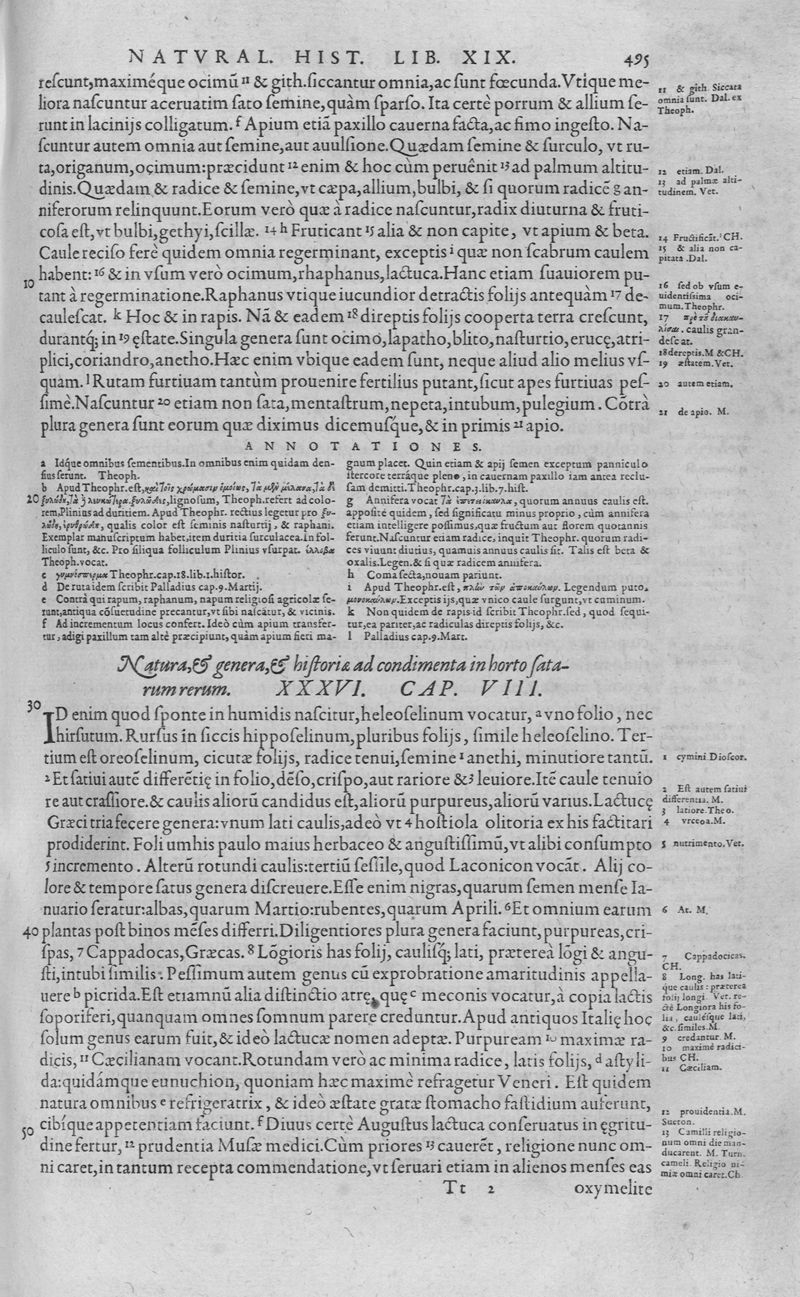 NATVRAL. HIST. LIB. XIX. 495
rescunt,maximéque ocimũ ¹¹ & gith.siccantur omnia,ac sunt fœcunda.Vtique me-
liora nascuntur aceruatim sato semine,quàm sparso. Ita certè porrum & allium se-
runt in lacinijs colligatum. ᶠ Apium etiã paxillo cauerna facta,ac fimo ingesto. Na-
scuntur autem omnia aut semine,aut auulsione.Quædam semine & surculo, vt ru-
ta,origanum,ocimum:præcidunt ¹² enim & hoc cùm peruênit ¹³ ad palmum altitu-
dinis.Quædam & radice & semine,vt cæpa,allium,bulbi, & si quorum radicē g an-
niferorum relinquunt.Eorum verò quæ à radice nascuntur,radix diuturna & fruti-
cosa est,vt bulbi,gethyi,scillæ. ¹⁴ ʰ Fruticant ¹⁵ alia & non capite, vt apium & beta.
Caule reciso ferè quidem omnia regerminant, exceptis ⁱ quæ non scabrum caulem
10 habent: ¹⁶ & in vsum verò ocimum,rhaphanus,lactuca.Hanc etiam suauiorem pu-
tant à regerminatione.Raphanus vtique iucundior detractis folijs antequàm ¹⁷ de-
caulescat. ᵏ Hoc & in rapis. Nã & eadem ¹⁸ direptis folijs cooperta terra crescunt,
durantq́; in ¹⁹ ęstate.Singula genera sunt ocimo,lapatho,blito,nasturtio,erucę,atri-
plici,coriandro,anetho.Hæc enim vbique eadem sunt, neque aliud alio melius vs-
quam. ˡ Rutam furtiuam tantùm prouenire fertilius putant,sicut apes furtiuas pes-
simè.Nascuntur ²⁰ etiam non sata,mentastrum,nepeta,intubum,pulegium. Cõtrà
plura genera sunt eorum quæ diximus dicemusque,& in primis ²¹ apio.
11 & gith. Siccata
omnia sunt. Dal. ex
Theoph.
12 etiam. Dal.
13 ad palmæ alti-
tudinem. Vet.
14 Fructificãt. CH.
15 & alia non ca-
pitata .Dal.
16 sed ob vsum e-
uidentissima oci-
mum.Theophr.
17 caulis gran-
descat.
18 dereptis.M &CH.
19 æstatem.Vet.
20 autem etiam.
21 de apio. M.
ANNOTATIONES.
a Idque omnibus sementibus.In omnibus enim quidam den-
sius serunt. Theoph.
b Apud Theophr.est,
20 lignosum, Theoph.refert ad colo-
rem,Plinius ad duritiem. Apud Theophr. rectius legetur pro
qualis color est seminis nasturtij, & raphani.
Exemplar manuscriptum habet,item duritia surculacea.In fol-
liculo sunt, &c. Pro siliqua folliculum Plinius vsurpat.
Theoph.vocat.
c γυμνόσπερμα Theophr.cap.18.lib.1.histor.
d De ruta idem scribit Palladius cap.9.Martij.
e Contrà qui rapum, raphanum, napum religiosi agricolæ se-
runt:antiqua cõsuetudine precantur,vt sibi nascãtur, & vicinis.
f Ad incrementum locus confert. Ideò cùm apium transfer-
tur, adigi paxillum tam altè præcipiunt,quàm apium fieri ma-
gnum placet. Quin etiam & apij semen exceptum panniculo
stercore terráque pleno, in cauernam paxillo iam antea reclu-
sam demitti.Theophr.cap.3.lib.7.hist.
g Annifera vocat quorum annuus caulis est.
appositè quidem, sed significatu minus proprio, cùm annifera
etiam intelligere possimus,quæ fructum aut florem quotannis
ferunt.Nascuntur etiam radice, inquit Theophr. quorum radi-
ces viuunt diutius, quamuis annuus caulis sit. Talis est beta &
oxalis.Legen.& si quæ radicem annifera.
h Coma secta,nouam pariunt.
i Apud Theophr.est, Legendum puto,
Exceptis ijs,quæ vnico caule surgunt,vt cuminum.
k Non quidem de rapis id scribit Theophr.sed, quod sequi-
tur,ea pariter,ac radiculas direptis folijs, &c.
l Palladius cap.9.Mart.
Natura,& genera,& historiæ ad condimenta in horto sata-
rum rerum. XXXVI. CAP. VIII.
30 ID enim quod sponte in humidis nascitur,heleoselinum vocatur, ᵃ vno folio, nec
hirsutum. Rursus in siccis hipposelinum,pluribus folijs, simile heleoselino. Ter-
tium est oreoselinum, cicutæ folijs, radice tenui,semine ¹ anethi, minutiore tantũ.
² Et satiui autē differētię in folio,dẽso,crispo,aut rariore & ³ leuiore.Itē caule tenuio
re aut crassiore.& caulis aliorũ candidus est,aliorũ purpureus,aliorũ varius.Lactucę
Græci tria fecere genera:vnum lati caulis,adeò vt ⁴ hostiola olitoria ex his factitari
prodiderint. Foli umhis paulo maius herbaceo & angustissimũ,vt alibi consumpto
⁵ incremento . Alterũ rotundi caulis:tertiũ sessile,quod Laconicon vocãt. Alij co-
lore & tempore satus genera discreuere.Esse enim nigras,quarum semen mense Ia-
nuario seratur:albas,quarum Martio:rubentes,quarum Aprili. ⁶ Et omnium earum
40 plantas post binos mēses differri.Diligentiores plura genera faciunt,purpureas,cri-
spas, ⁷ Cappadocas,Græcas. ⁸ Lõgioris has folij, caulisq́; lati, præterea lõgi & angu-
sti,intubi similis. Pessimum autem genus cũ exprobratione amaritudinis appella-
uere ᵇ picrida.Est etiamnũ alia distinctio atrę,quę ᶜ meconis vocatur,à copia lactis
soporiferi,quanquam omnes somnum parere creduntur.Apud antiquos Italię hoc
solum genus earum fuit,& ideò lactucæ nomen adeptæ. Purpuream ¹⁰ maximæ ra-
dicis, ¹¹ Cæcilianam vocant.Rotundam verò ac minima radice, latis folijs, ᵈ astyli-
da:quidámque eunuchion, quoniam hæc maximè refragetur Veneri. Est quidem
natura omnibus ᵉ refrigeratrix, & ideò æstate gratæ stomacho fastidium auferunt,
50 cibíque appetentiam faciunt. ᶠ Diuus certè Augustus lactuca conseruatus in ęgritu-
dine fertur, ¹² prudentia Musæ medici.Cùm priores ¹³ cauerēt, religione nunc om-
ni caret,in tantum recepta commendatione,vt seruari etiam in alienos menses eas
1 cymini Dioscor.
2 Est autem satiui
differentia. M.
3 latiore.Theo.
4 vrceoa.M.
5 nutrimento.Vet.
6 At. M.
7 Cappadocicas.
CH.
8 Long. has lati-
que caulis: præterea
folij longi Vet. re-
ctè Longiora his fo-
lia, caulésque lati,
&c.similes.M.
9 credantur. M.
10 maximè radici-
bus CH.
11 Cæciliam.
12 prouidentia.M.
Sueton.
13 Camilli religio-
num omni die man-
ducarent. M. Turn.
cameli. Religio ni-
miæ omni caret.Ch
Tt 2 oxymelite